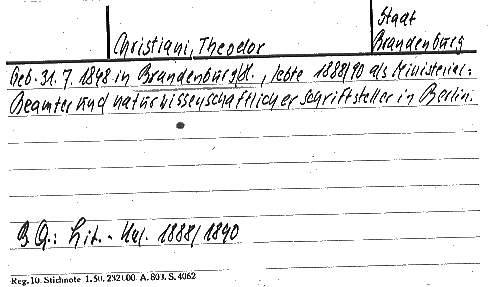 Staat
Christiani, Theodor Brandenburg
Geb. 31. 7. 1848 in Brandenburg/H., lebte 1888/90 als Ministerial=
Beamter und naturwissenschaftlicher Schriftsteller in Berlin.
B Q.: Lit. - Kal. 1888/1890
Reg. 10. Stichnote 1. 50. 232000. A. 803. S. 4062